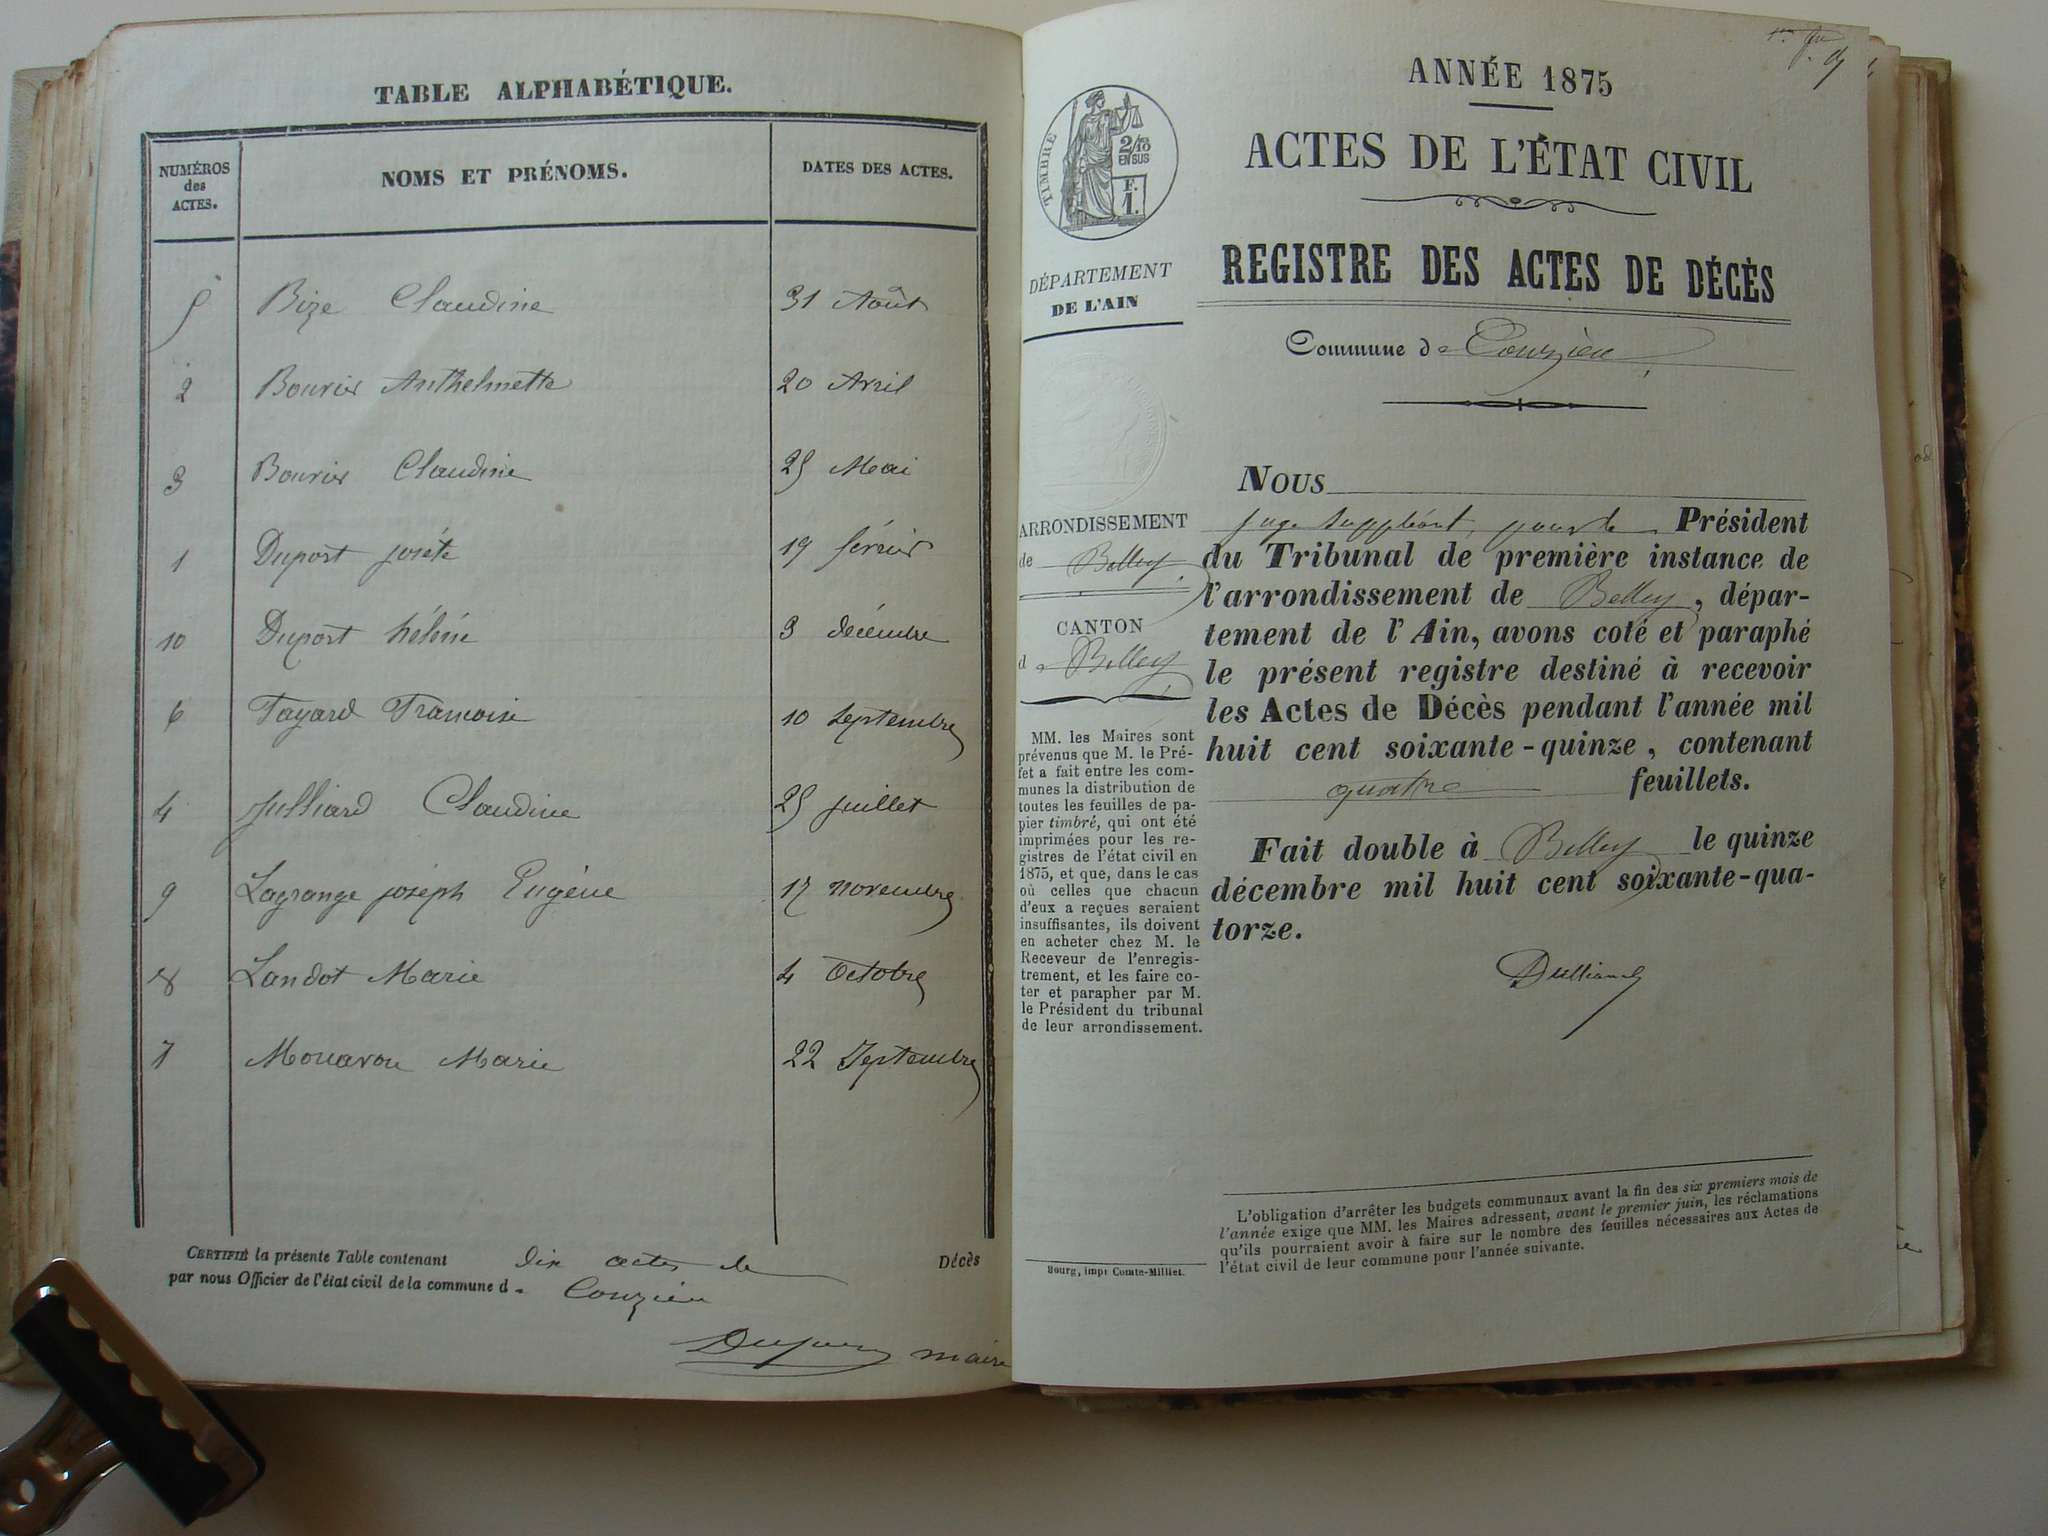 TABLE ALPHABÉTIQUE.
NUMÉROS des ACTES. NOMS ET PRÉNOMS. DATES DES ACTES.
5 Bize Claudine 31 Août
2 Bouvier Anthelmette 20 Avril
3 Bouvier Claudine 25 Mai
1 Duport josète 19 février
10 Duport hélène 3 décembre
6 Fayard Francoise 10 Septembre
4 Julliard Claudine 25 juillet
9 Lagrange joseph Eugène 17 novembre
8 Landot Marie 4 Octobre
7 Marie 22 Septembre
CERTIFIÉ la présente Table contenant dix actes de Décès
par nous Officier de l'état civil de la commune d e Conzieu
maire
ANNÉE 1875
ACTES DE L'ÉTAT CIVIL
REGISTRE DES ACTES DE DÉCÈS
Commune de Conzieu
TIMBRE
2/10
EN SUS
F.
1.
DÉPARTEMENT
DE L'AIN
ARRONDISSEMENT
de Belley
CANTON
de Belley
MM. les Maires sont
prévenus que M. le Pré-
fet a fait entre les com-
munes la distribution de
toutes les feuilles de pa-
pier timbré, qui ont été
imprimées pour les re-
gistres de l'état civil en
1875, et que, dans le cas
où celles que chacun
d'eux a reçues seraient
insuffisantes, ils doivent
en acheter chez M. le
Receveur de l'enregis-
trement, et les faire co-
ter et parapher par M.
le Président du tribunal
de leur arrondissement.
Bourg, impr Comte-Milliet.
NOUS
juge suppléant, pour le Président
du Tribunal de première instance de
l'arrondissement de Belley, dépar-
tement de l'Ain, avons coté et paraphé
le présent registre destiné à recevoir
les Actes de Décès pendant l'année mil
huit cent soixante-quinze, contenant
quatre feuillets.
Fait double à Belley le quinze
décembre mil huit cent soixante-qua-
torze.
L'obligation d'arrêter les budgets communaux avant la fin des six premiers mois de
l'année exige que MM. les Maires adressent, avant le premier juin, les réclamations
qu'ils pourraient avoir à faire sur le nombre des feuilles nécessaires aux Actes de
l'état civil de leur commune pour l'année suivante.